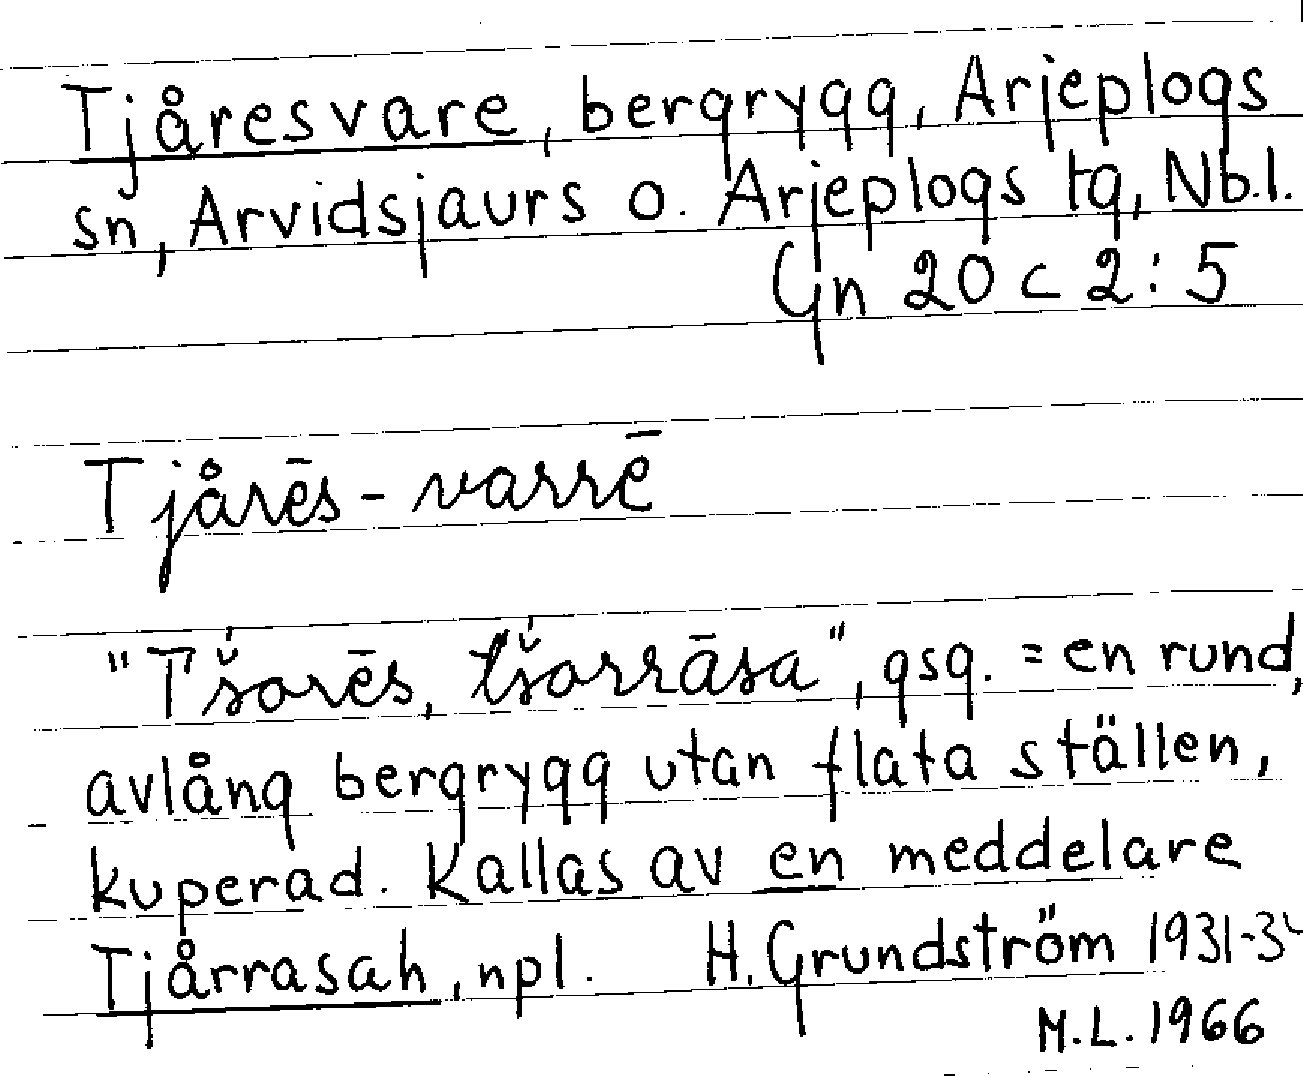 Tjåresvare, bergrygg, Arjeplogs
sn, Arvidsjaurs o. Arjeplogs tg, Nb.l.
Gn 20 c 2:5
Tjårēs-varrē
"Tšorēs, tšorrāsa", gsg. = en rund,
avlång bergrygg utan flata ställen,
kuperad. Kallas av en meddelare
Tjårrasah, npl. H. Grundström 1931-3
M.L. 1966